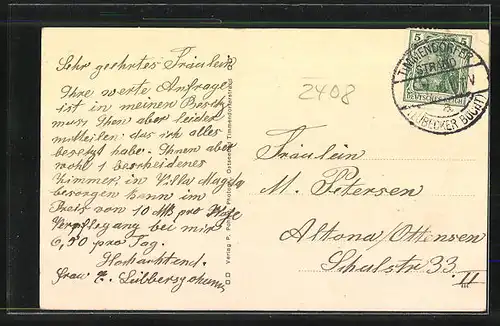 Sehr geehrtes Fräulein
Ihre werte Anfrage
ist in meinen Besitz
muss Ihnen aber leider
mitteilen das ich alles
besetzt habe. Ihnen aber
wohl 1 bescheidenes
Zimmer, in Villa Magda
besorgen kann im
Preis von 10 Mk pro
Verpflegung bei mir
6,50 pro Tag.
Hochachtend.
Frau E.
2408
5 5
TIMMENDORFER
STRAND
DEUTSCHES REICH
(LÜBECKER BUCHT)
Fräulein
M. Petersen
Altona/Ottensen
Schulstr 33 II
Verlag P.
Timmendorferstrand